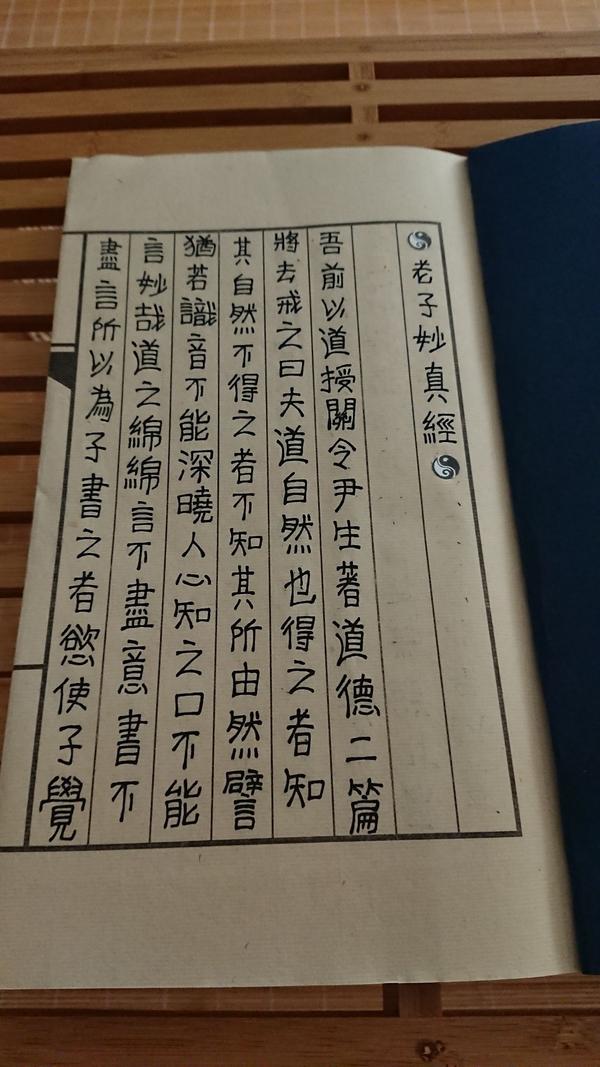 老子妙真經
吾前以道授關令尹生著道德二篇
將去戒之曰夫道自然也得之者知
其自然不得之者不知其所由然譬
猶若識音不能深曉人心知之口不能
言妙哉道之綿綿言不盡意書不
盡言所以為子書之者慾使子覺